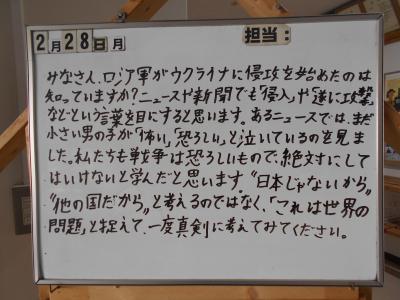 2月28日月 担当:
みなさん、ロシア軍がウクライナに侵攻を始めたのは
知っていますか?ニュースや新聞でも「侵入」や「遂に攻撃」
などという言葉を目にすると思います。あるニュースでは、まだ
小さい男の子が「怖い」、「恐ろしい」と泣いているのを見ま
した。私たちも戦争は恐ろしいもので、絶対にして
はいけないと学んだと思います。"日本じゃないから"
"他の国だから"と考えるのではなく、「これは世界の
問題」と捉えて、一度真剣に考えてみてください。